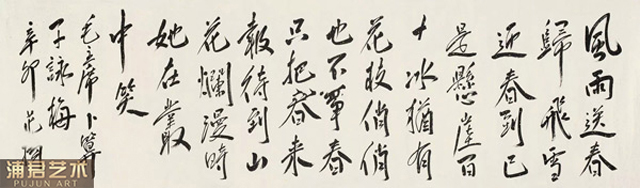 風雨送春
歸飛雪
迎春到已
是懸崖百
丈冰猶有
花枝俏俏
也不爭春
只把春来
報待到山
花爛漫時
她在叢
中笑
毛主席卜算
子詠梅
辛卯
浦君艺术
PUJUN ART